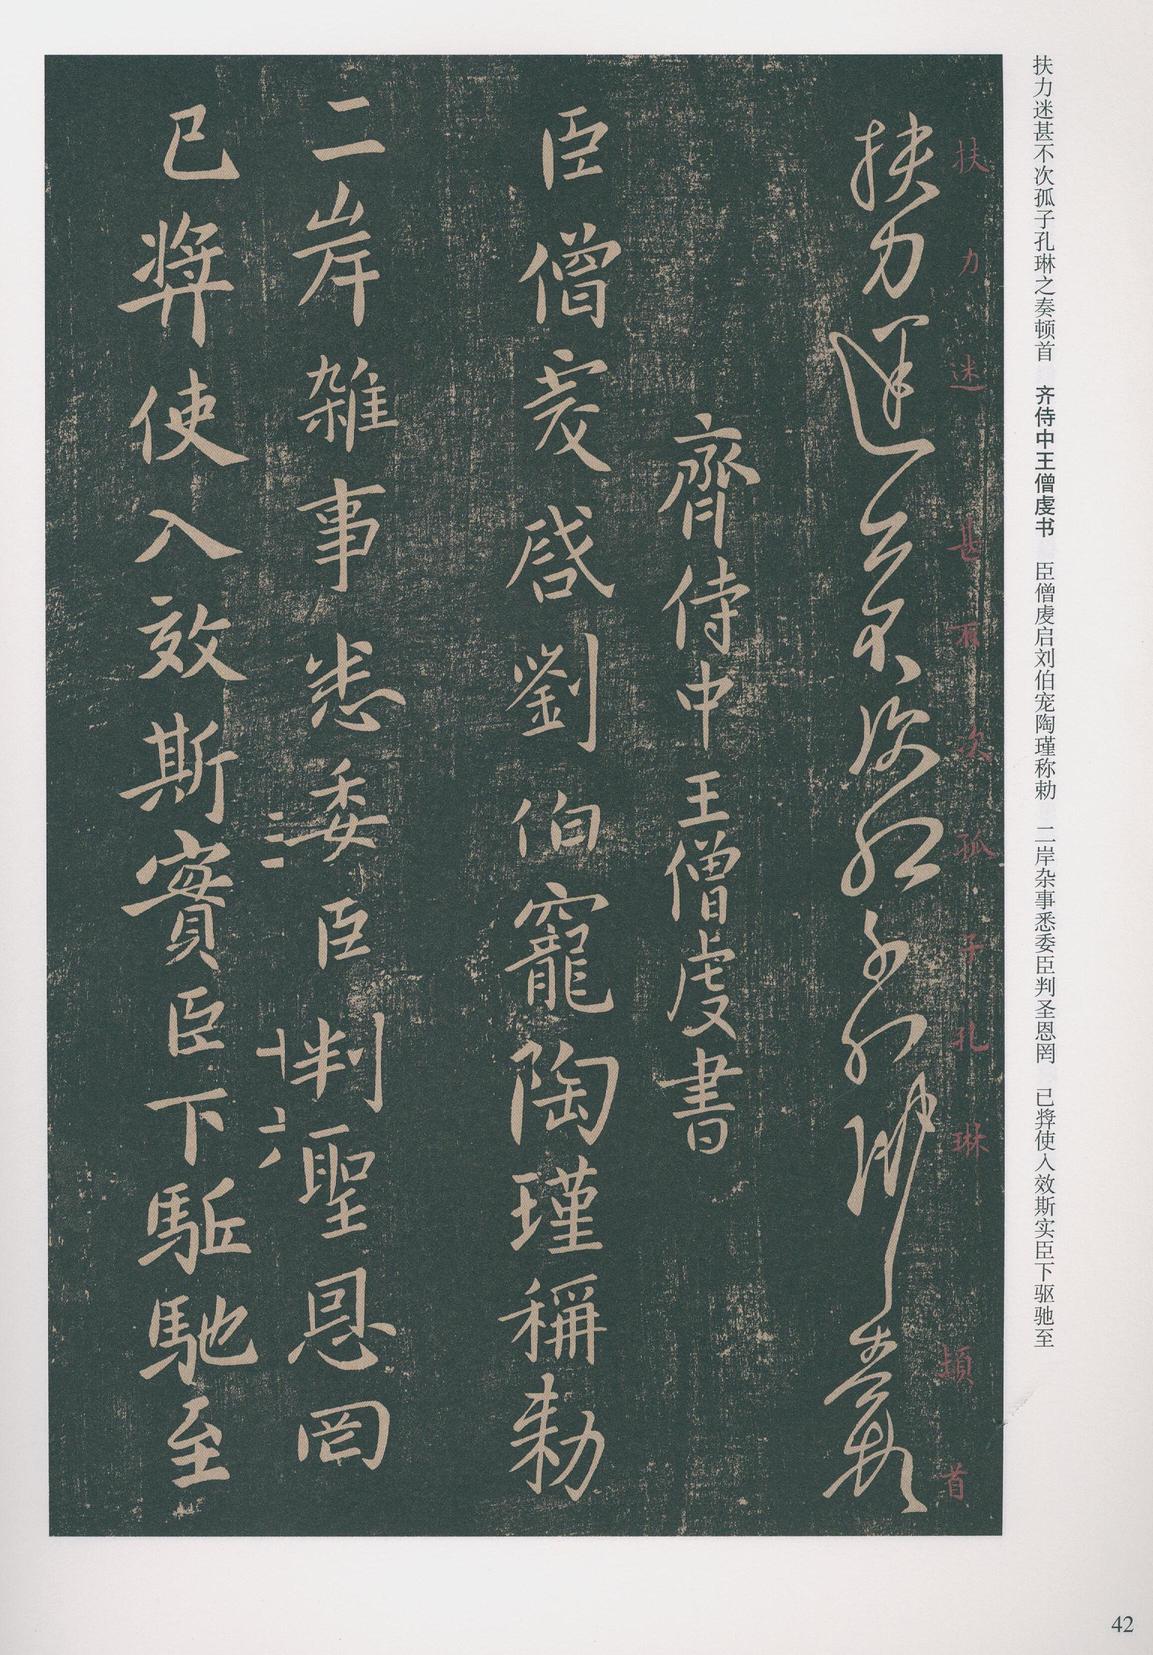 扶力迷甚不次孤子孔琳之奏顿首　齐侍中王僧虔书　臣僧虔启刘伯宠陶瑾称勅　二岸杂事悉委臣判圣恩罔　已弉使入效斯实臣下驱驰至
扶力迷甚不次孤子孔琳
頓首
扶力迷甚不次孤子孔琳之奏頓首
齊侍中王僧虔書
臣僧虔啓劉伯寵陶瑾稱勅
二岸雜事悉委臣判聖恩罔
三
二十六
已弉使入效斯實臣下駈馳至
42